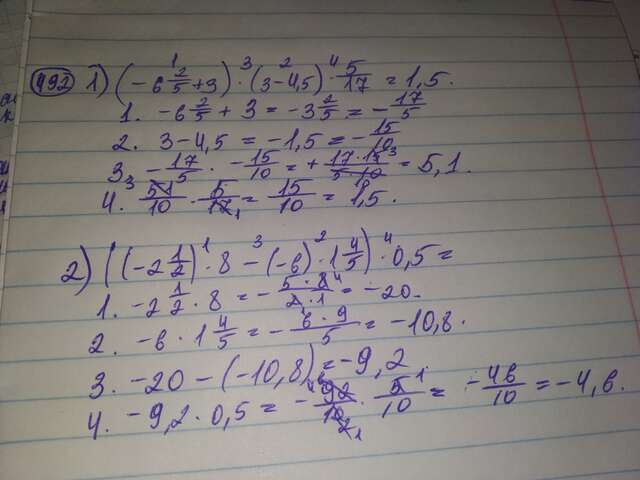 492 1) (-6 2/5 + 3) · (3 - 4,5) · 5/17 = 1,5.
1. -6 2/5 + 3 = -3 2/5 = -17/5
2. 3 - 4,5 = -1,5 = -15/10
3. -17/5 · -15/10 = + 17 · 15/5 · 10 = 5,1.
4. 51/10 · 5/17 = 15/10 = 1,5.
2) ((-2 1/2) · 8 - (-6) · 1 4/5) · 0,5 =
1. -2 1/2 · 8 = - 5 · 8/2 · 1 = -20.
2. -6 · 1 4/5 = - 6 · 9/5 = -10,8.
3. -20 - (-10,8) = -9,2
4. -9,2 · 0,5 = - 92/10 · 5/10 = -46/10 = -4,6.